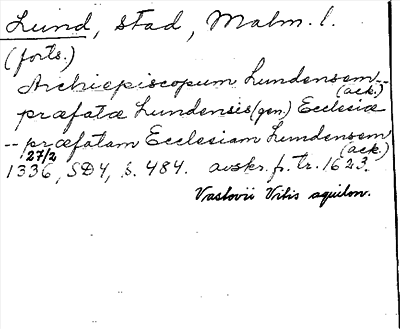 Lund, stad, Malm. l.
(forts.)
Archiepiscopum Lundensem --
(ack.)
præfatæ Lundensis (gen) Ecclesiæ
-- præfatam Ecclesiam Lundensem
(ack.)
27/2
1336, SD4, s. 484. avskr. fr. tr. 1623.
Vastovii Vitis aquilon.